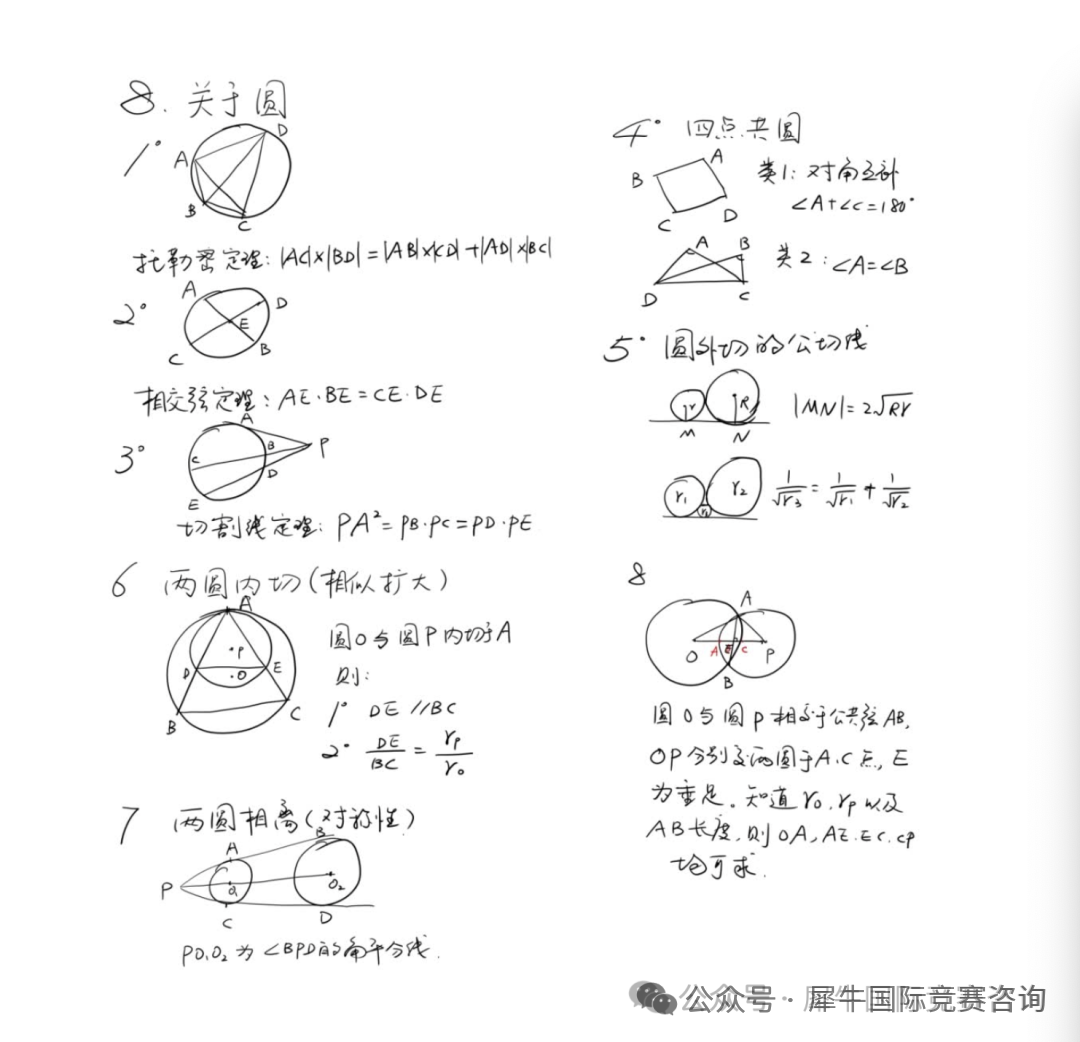 8. 关于圆
1°
A
D
B
C
托勒密定理: |AC|×|BD|=|AB|×|CD|+|AD|×|BC|
2°
A
D
E
C
B
相交弦定理: AE·BE=CE·DE
3°
A
B
P
C
D
E
切割线定理: PA²=PB·PC=PD·PE
4° 四点共圆
A
B
C
D
类1: 对角互补
∠A+∠C=180°
A
B
D
C
类2: ∠A=∠B
5° 圆外切的公切线
r
R
M
N
|MN|=2√Rr
r₁
r₂
r₃
1/√r₃ = 1/√r₁ + 1/√r₂
6 两圆内切(相似扩大)
A
P
D
E
O
B
C
圆O与圆P内切于A
则:
1° DE//BC
2° DE/BC = rP/rO
7 两圆相离(对称性)
B
A
P
O₁
O₂
C
D
PO₁O₂为∠BPD的角平分线.
8
A
O
A
E
C
P
B
圆O与圆P相交于公共弦AB,
OP分别交两圆于A.C点, E
为垂足。知道rO.rP以及
AB长度,则OA,AE.EC.CP
均可求.
公众号·犀牛国际竞赛咨询